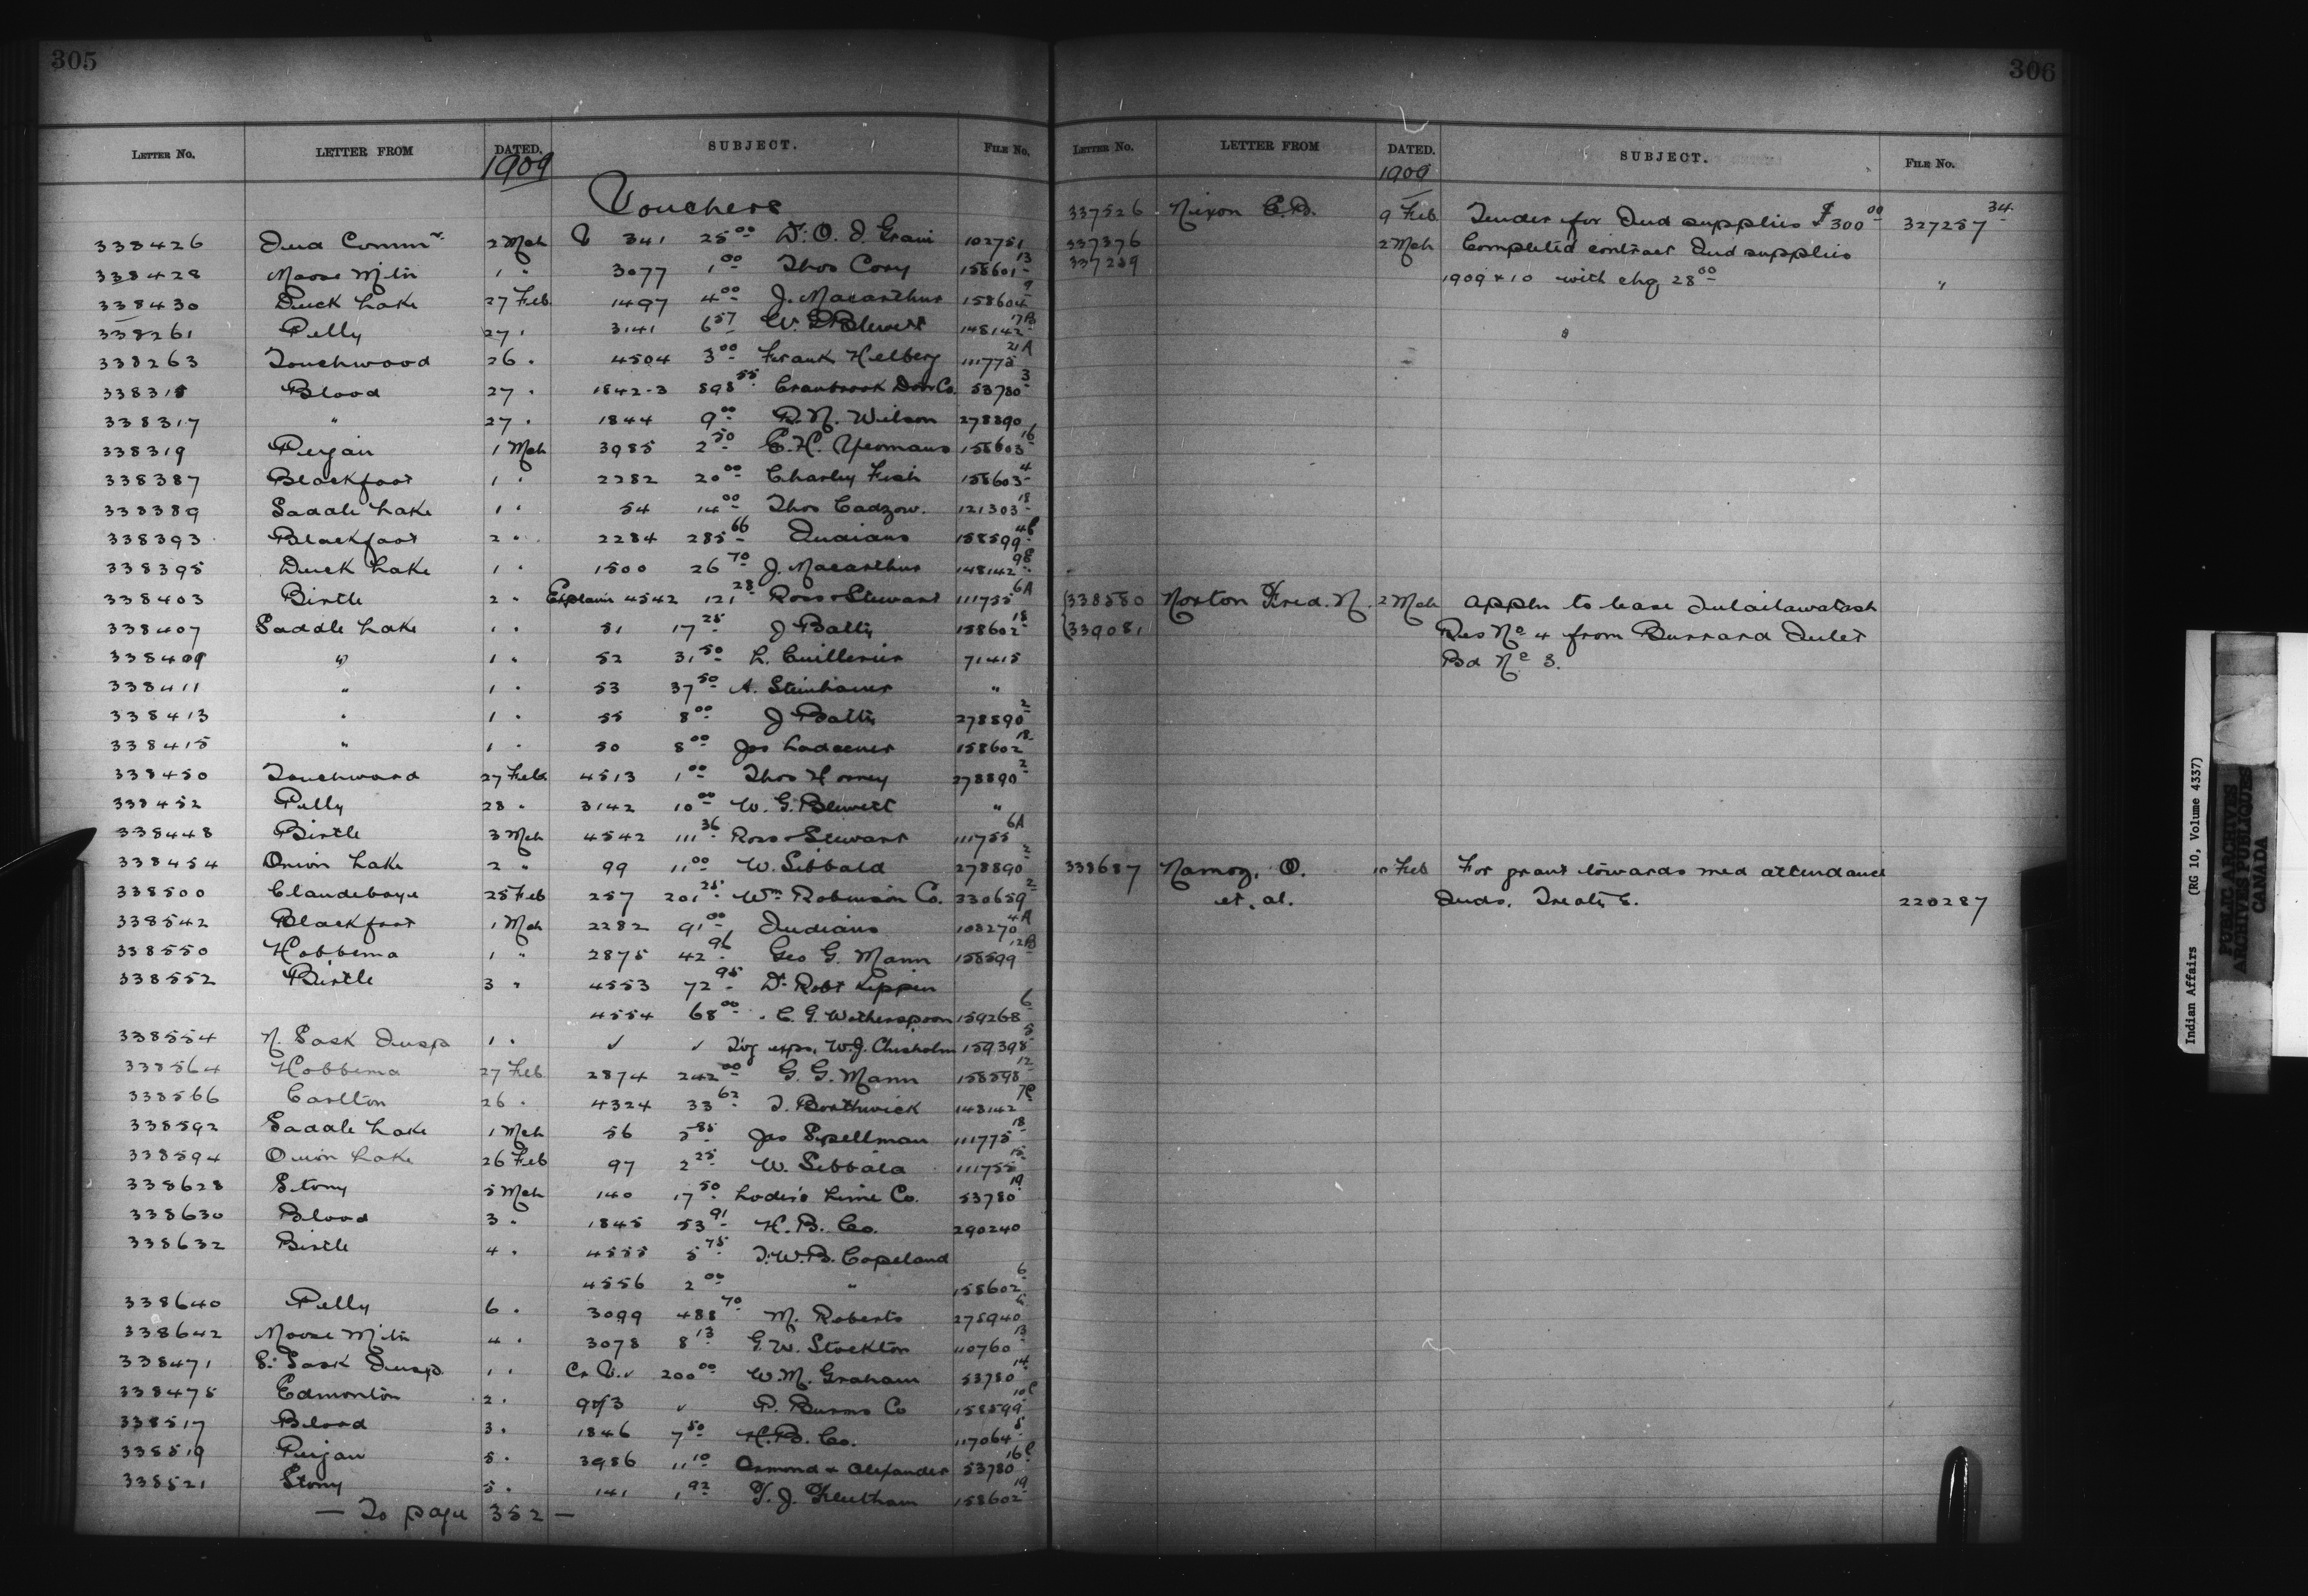 305
LETTER NO. LETTER FROM DATED. SUBJECT. FILE No.
1909
Vouchers
338426 Ind Commr. 2 Mch V 341 25 00 Dr. O. I. Grain 102751
338428 Moose Mtn 1 " 3077 1 00 Thos Cory 158601 13
338430 Duck Lake 27 Feb 1497 4 00 J. Macarthur 158604 9
338261 Pelly 27 " 3141 6 57 W. G. Blewett 148142 17B
338263 Touchwood 26 " 4504 3 00 Frank Helberg 111775 21A
338315 Blood 27 " 1842-3 898 55 Cranbrook Door Co. 53780 3
338317 " 27 " 1844 9 00 R. N. Wilson 278890
338319 Peigan 1 Mch 3985 2 50 E. H. Yeomans 158603 16
338387 Blackfoot 1 " 2282 20 00 Charley Fish 158603 4
338389 Saddle Lake 1 " 54 14 00 Thos Cadzow. 121303 18
338393 Blackfoot 2 " 2284 285 66 Indians 158599 4C
338395 Duck Lake 1 " 1500 26 70 J. Macarthur 148142 9C
338403 Birtle 2 " Explain 4542 121 28 Ross & Stewart 111755 6A
338407 Saddle Lake 1 " 51 17 25 J Batty 158602 18
338409 " 1 " 52 31 50 L. Cuillerier 71415
338411 " 1 " 53 37 50 A. Steinhauer "
338413 " 1 " 55 8 00 J Batty 278890 2
338415 " 1 " 50 8 00 Jas Ladecner 158602 18
338450 Touchwood 27 Feb 4513 1 00 Thos Horney 278890 2
338452 Pelly 28 " 3142 10 00 W. G. Blewett "
338448 Birtle 3 Mch 4542 111 36 Ross & Stewart 111755 6A
338454 Onion Lake 2 " 99 11 00 W. Sibbald 278890 2
338500 Clandeboye 25 Feb 257 201 25 Wm Robinson Co. 330659 2
338542 Blackfoot 1 Mch 2282 91 00 Indians 108270 4A
338550 Hobbema 1 " 2875 42 96 Geo G. Mann 158599 12B
338552 Birtle 3 " 4553 72 95 Dr. Robt Kippen
4554 68 00 " C. G. Wotherspoon 159268 6
338554 N. Sask Insp 1 " ✓ ✓ Tvg exps. W. J. Chisholm 159398 5
338564 Hobbema 27 Feb 2874 242 00 G. G. Mann 158598 12
338566 Carlton 26 " 4324 33 62 T. Borthwick 148142 7C
338592 Saddle Lake 1 Mch 56 5 85 Jas Spellman 111775 18
338594 Onion Lake 26 Feb 97 2 25 W. Sibbald 111755 15
338628 Stony 5 Mch 140 17 50 Loder's Lime Co. 53780 19
338630 Blood 3 " 1845 53 91 H. B. Co. 290240
338632 Birtle 4 " 4555 5 75 T. W. B. Copeland
4556 2 00 " 158602 6
338640 Pelly 6 " 3099 488 70 M. Roberts 275940
338642 Moose Mtn 4 " 3078 8 13 G. W. Stockton 110760 13
338471 S. Sask Insp. 1 " Cr V. ✓ 200 00 W. M. Graham 53780 14
338475 Edmonton 2 " ✓ P. Burns Co 158599 10C
338517 Blood 3 " 1846 7 50 H. B. Co. 117064 5
338519 Peigan 5 " 3986 11 10 Ormond & Alexander 53780 16C
338521 Stony 5 " 141 1 92 T. J. Fleetham 158602 19
— To page 352 —
306
LETTER NO. LETTER FROM DATED. SUBJECT. FILE No.
1909
337526 Nixon C. D. 9 Feb Tender for Ind supplies $300 00 327257 34
337376 2 Mch Completed contract Ind supplies
337259 1909 & 10 with chq 28 00 "
"
338580 Norton Fred. N. 2 Mch Appln to lease
339081 Res No 4 from Burrard Inlet
Bd No 3.
338687 Namoz, O. 10 Feb For grant towards med attendance
et. al. Inds. Treaty 6. 220287
Indian Affairs (RG 10, Volume 4337)
PUBLIC ARCHIVES
ARCHIVES PUBLIQUES
CANADA